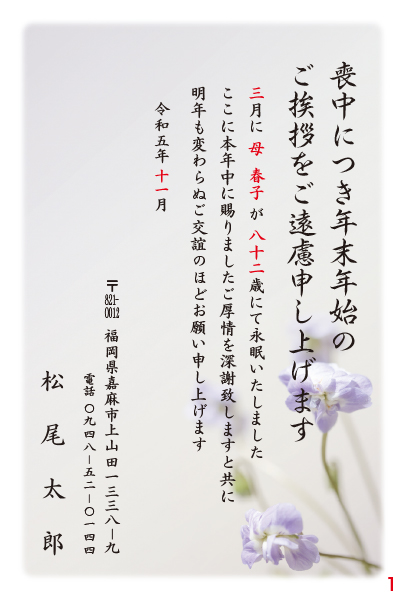 喪中につき年末年始の
ご挨拶をご遠慮申し上げます
三月に 母 春子 が 八十二歳にて永眠いたしました
ここに本年中に賜りましたご厚情を深謝致しますと共に
明年も変わらぬご交誼のほどお願い申し上げます
令和五年十一月
〒821-0012 福岡県嘉麻市上山田一三三八ー九
電話 〇九四八ー五二ー〇一四四
松尾太郎
1